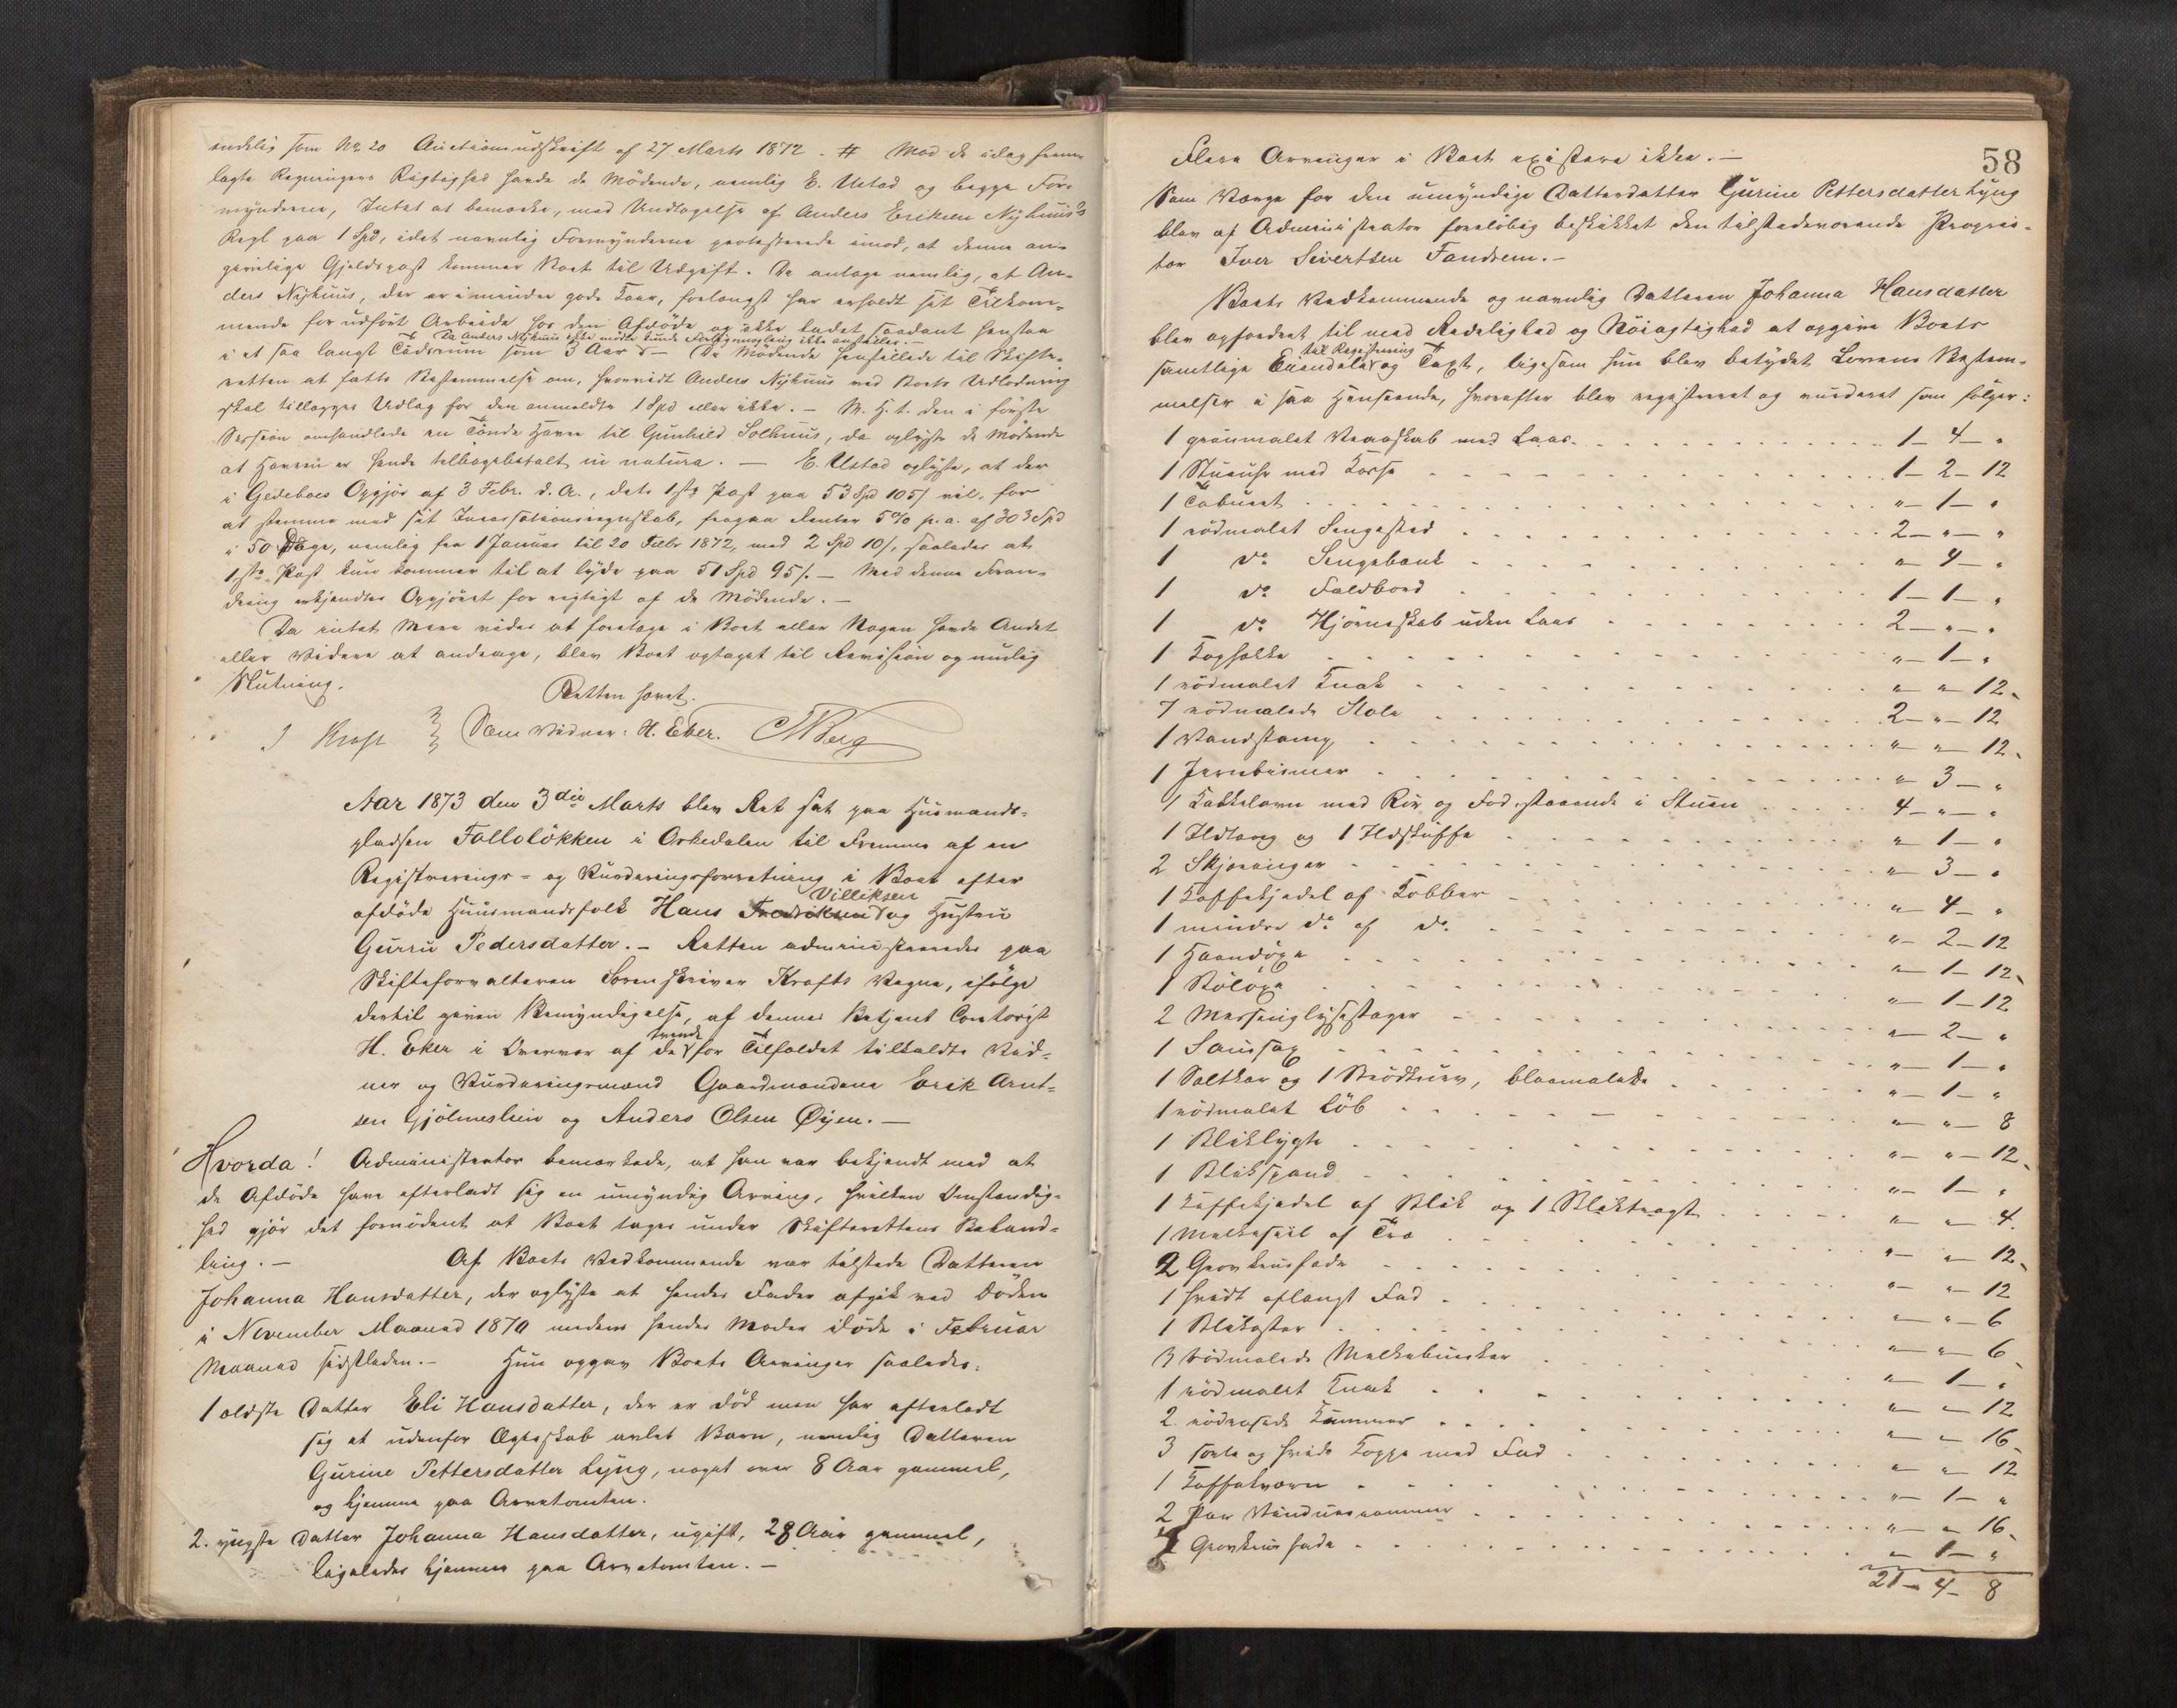 endelig som No 20 Auctionsudskrift af 27 Marts 1872. # Mod de idag frem-
lagte Regningers Rigtighed havde de Mødende, nemlig E. Ustad og begge For-
mynderne, Intet at bemærke, med Undtagelse af Anders Eriksen Nyhuus's
Regl paa 1 Spd, idet navnlig Formynderne protesterede imod, at denne an-
givelige Gjeldspost kommer Boet til Udgift. De antage nemlig, at An-
ders Nyhuus, der er i mindre gode Kaar, forlængst har erholdt sit Tilkom-
mende for udført Arbeide hos den Afdøde og ikke ladet saadant henstaa
Da Anders Nyhuus ikke mødte kunde Forligsmægling ikke anstilles.-
i et saa langt Tidsrum som 3 Aar - De Mødende henstillede til Skifte-
retten at fatte Bestemmelse om, hvorvidt Anders Nyhuus ved Boets Udlodning
skal tillægges Udlag for den anmeldte 1 Spd eller ikke. - M. H. t. den i første
Session omhandlede en Tønde Havre til Gunhild Solhuus, da oplyste de Mødende
at Havren er hende tilbagebetalt in natura. - E. Ustad oplyste, at der
i Gedeboes Opgjør af 3 Febr. d. A., dets 1ste Post paa 53 Spd 105 / vil, for
at stemme med sit Incassationsregnskab, fragaa Renter 5 % p. a. af 303 Spd
i 50 Dage, nemlig fra 1 Januar til 20 Febr 1872, med 2 Spd 10 /, saaledes at
1ste Post kun kommer til at lyde paa 51 Spd 95 /. - Med denne Foran-
dring erkjendtes Opgjøret for rigtigt af de Mødende. -
Da intet Mere vides at foretage i Boet eller Nogen havde Andet
eller Videre at andrage, blev Boet optaget til Revision og mulig
Slutning.
Retten hævet.
J Kraft Som Vidner: H. Eker. Berg
Aar 1873 den 3die Marts blev Ret sat paa Huusmands-
pladsen Falloløkken i Orkedalen til Fremme af en
Registrerings- og Vurderingsforretning i Boet efter
Villiksen
afdøde Huusmandsfolk Hans Fredriksen og Hustru
Gurru Pedersdatter. - Retten administreredes paa
Skifteforvalteren Sorenskriver Krafts Vegne, ifølge
dertil given Bemyndigelse, af dennes Betjent Contorist
tvende
H. Eker i Overvær af de for Tilfældet tilkaldte Vid-
ner og Vurderingsmænd Gaardmændene Erik Arnt-
sen Gjølmeslien og Anders Olsen Øyen. -
Hvorda! Administrator bemærkede, at han var bekjendt med at
de Afdøde have efterladt sig en umyndig Arving, hvilken Omstændig-
hed gjør det fornødent at Boet tages under Skifterettens Behand-
ling. - Af Boets Vedkommende var tilstede Datteren
Johanna Hansdatter, der oplyste at hendes Fader afgik ved Døden
i November Maaned 1870 medens hendes Moder døde i Februar
Maaned sidstleden. - Hun opgav Boets Arvinger saaledes:
1 ældste Datter Eli Hansdatter, der er død men har efterladt
sig et udenfor Ægteskab avlet Barn, nemlig Datteren
Gurine Pettersdatter Lyng, noget over 8 Aar gammel,
og hjemme paa Arvetomten.
2. yngste Datter Johanna Hansdatter, ugift, 28 Aar gammel,
ligeledes hjemme paa Arvetomten. -
58
Flere Arvinger i Boet existere ikke. -
Som Værge for den umyndige Datterdatter Gurine Pettersdatter Lyng
blev af Administrator foreløbig beskikket den tilstedeværende Proprie-
tær Iver Sivertsen Fandrem. -
Boets Vedkommende og navnlig Datteren Johanna Hansdatter
blev opfordret til med Redelighed og Nøiagtighed at opgive Boets
til Registrering
samtlige Eiendele og Taxt, ligesom hun blev betydet Lovens Bestem-
melser i saa Henseende, hvorefter blev registreret og vurderet som følger:
1 grønmalet Vægskab med Laas 1 - 4 - "
1 Stueuhr med Kasse 1 - 2 - 12
1 Taburet " - 1 - "
1 rødmalet Sengested 2 - " - "
1 do Sengebænk " - 4 - "
1 do Faldbord 1 - 1 - "
1 do Hjørneskab uden Laas 2 - " - "
1 Kophylle " - 1 - "
1 rødmalet Krak " - " - 12
7 rødmalede Stole 2 - " - 12
1 Vandstamp " - " - 12
1 Jernbismer " - 3 - "
1 Kakkelovn med Rør og Fod, staaende i Stuen 4 - " - "
1 Ildtang og 1 Ildskuffe " - 1 - "
2 Skjæringer " - 3 - "
1 Kaffekjedel af Kobber " - 4 - "
1 mindre do af do " - 2 - 12
1 Haandøxe " - 1 - 12
1 Bøløxe " - 1 - 12
2 Messinglysestager " - 2 - "
1 Sausax " - 1 - "
1 Saltkar og 1 Brødkurv, blaamalede " - 1 - "
1 rødmalet Løb " - " - 8
1 Bliklygte " - " - 12
1 Blikspand " - 1 - "
1 Kaffekjedel af Blik og 1 Bliktragt " - " - 4
1 Melkesiil af Træ " - " - 12
2 Grovkrusfade " - " - 12
1 hvidt aflangt Fad " - " - 6
1 Blikøster " - " - 6
3 rødmalede Melkebunker " - 1 - "
1 rødmalet Krak " - " - 12
2 rødrosede Krummer " - " - 16
3 sorte og hvide Koppe med Fad " - " - 12
1 Kaffekværn " - 1 - "
2 Par Vinduesrammer " - " - 16
Grovkrusfade " - 1 - "
21 - 4 - 8